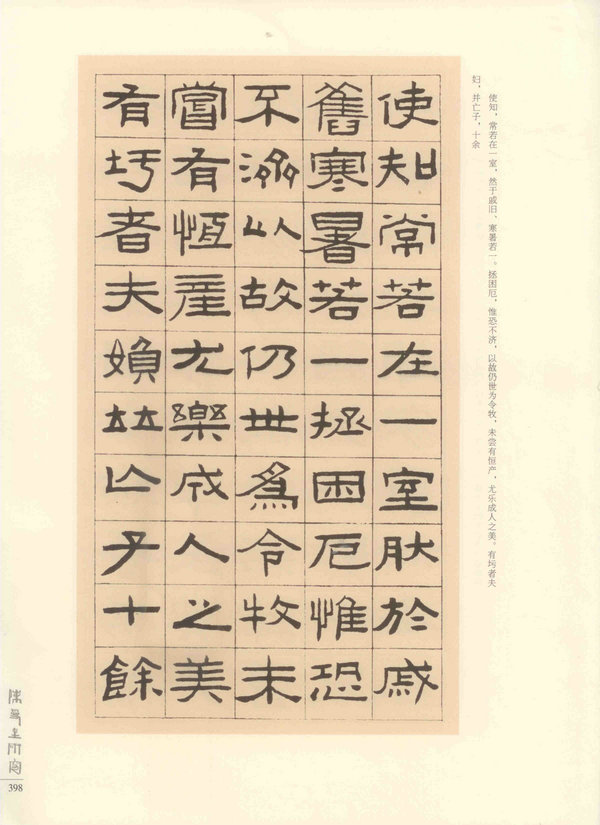 使知常若在一室肰於戚
舊寒暑若一拯困厄惟恐
不濟以故仍世爲令牧未
嘗有恆產尤樂成人之美
有圬者夫媍竝亾子十餘
使知，常若在一室，然于戚旧、寒暑若一。拯困厄，惟恐不济，以故仍世为令牧，未尝有恒产，尤乐成人之美。有圬者夫
妇，并亡子，十余
398